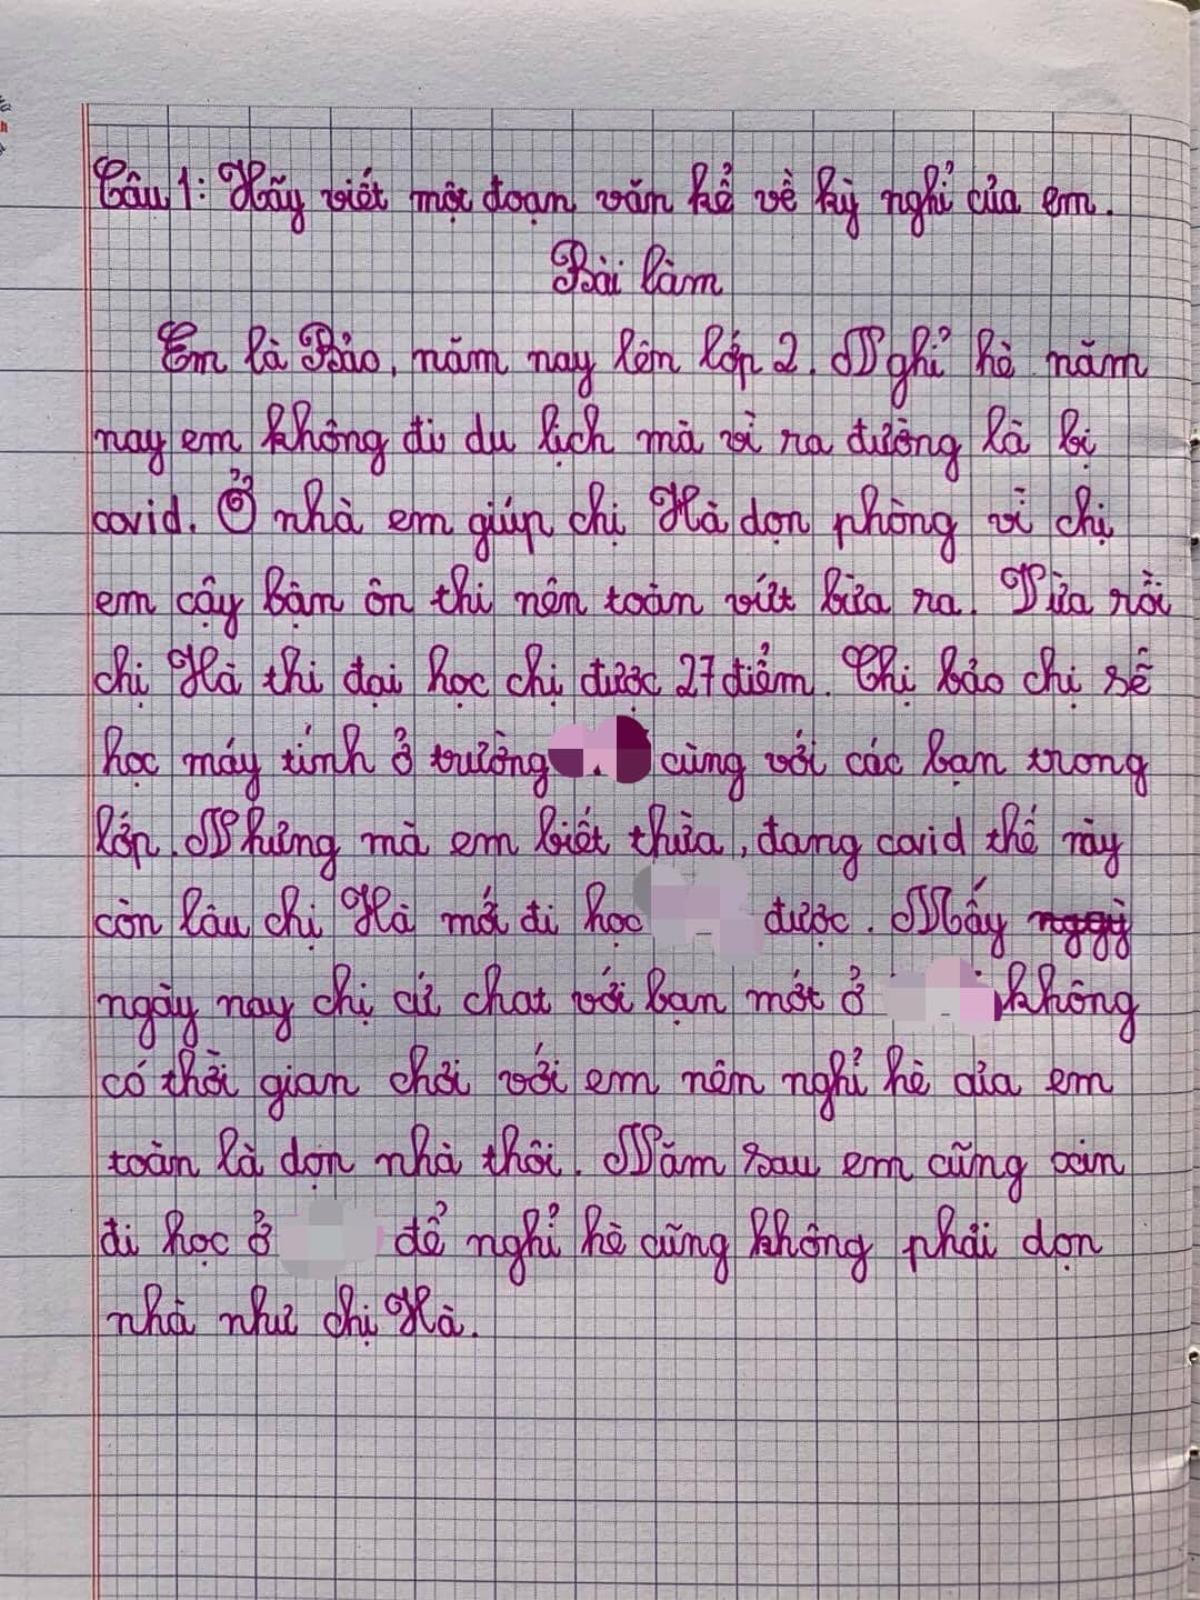 Câu 1: Hãy viết một đoạn văn kể về kỳ nghỉ của em.
Bài làm
Em là Bảo, năm nay lên lớp 2. Nghỉ hè năm
nay em không đi du lịch mà vì ra đường là bị
covid. Ở nhà em giúp chị Hà dọn phòng vì chị
em cậy bận ôn thi nên toàn vứt bừa ra. Vừa rồi
chị Hà thi đại học chị được 27 điểm. Chị bảo chị sẽ
học máy tính ở trường cùng với các bạn trong
lớp. Nhưng mà em biết thừa, đang covid thế này
còn lâu chị Hà mới đi học được. Mấy
ngày nay chị cứ chat với bạn mới ở không
có thời gian chơi với em nên nghỉ hè của em
toàn là dọn nhà thôi. Năm sau em cũng xin
đi học ở để nghỉ hè cũng không phải dọn
nhà như chị Hà.